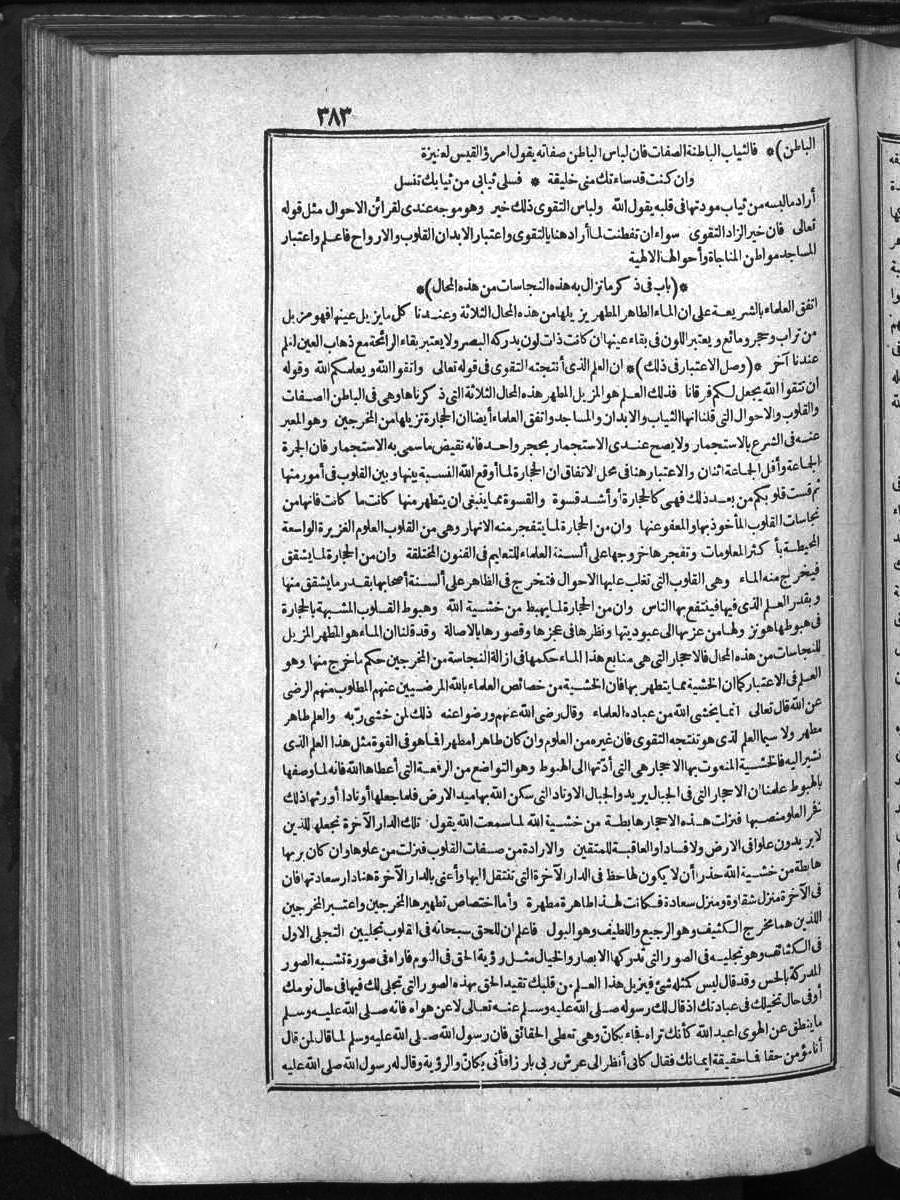 ٣٨٣
الباطن)* فالثياب الباطنة الصفات فان لباس الباطن صفاته يقول امرؤ القيس لعنيزة
وان كنت قد ساءتك منى خليقة * فسلى ثيابى من ثيابك تنسل
أراد مالبسه من ثياب مودتها فى قلبه يقول الله ولباس التقوى ذلك خير وهو موجه عندى لقرائن الاحوال مثل قوله
تعالى فان خير الزاد التقوى سواء ان تفطنت لما أراد هنا بالتقوى واعتبار الابدان القلوب والارواح فاعلم واعتبار
المساجد مواطن المناجاة وأحوالها الالهية
*(باب فى ذكر ماتزال به هذه النجاسات من هذه المحال)*
اتفق العلماء بالشريعة على ان الماء الطاهر المطهر يزيلها من هذه المحال الثلاثة وعندنا كل مايزيل عينها فهو مزيل
من تراب وحجر ومائع ويعتبر اللون فى بقاء عينها ان كانت ذات لون يدركه البصر ولا يعتبر بقاء الرائحة مع ذهاب العين لعلم
عندنا آخر *(وصل الاعتبار فى ذلك)* ان العلم الذى أنتجته التقوى فى قوله تعالى واتقوا الله ويعلمكم الله وقوله
ان تتقوا الله يجعل لكم فرقانا فذلك العلم هو المزيل المطهر هذه المحال الثلاثة التى ذكرناها وهى فى الباطن الصفات
والقلوب والاحوال التى قلنا انها الثياب والابدان والمساجد واتفق العلماء أيضا ان الحجارة تزيلها من المخرجين وهو المعبر
عنه فى الشرع بالاستجمار ولا يصح عندى الاستجمار بحجر واحد فانه نقيض ماسمى به الاستجمار فان الجمرة
الجماعة وأقل الجماعة اثنان والاعتبار هنا فى محل الاتفاق ان الحجارة لما أوقع الله النسبة بينها وبين القلوب فى أمور منها
ثم قست قلوبكم من بعد ذلك فهى كالحجارة أو أشد قسوة والقسوة مما ينبغى ان يتطهر منها كانت ما كانت فانها من
نجاسات القلوب المأخوذ بها والمعفو عنها وان من الحجارة لما يتفجر منه الانهار وهى من القلوب العلوم الغزيرة الواسعة
المحيطة بأكثر المعلومات وتفجرها خروجها على ألسنة العلماء للتعليم فى الفنون المختلفة وان من الحجارة لما يشقق
فيخرج منه الماء وهى القلوب التى تغلب عليها الاحوال فتخرج فى الظاهر على ألسنة أصحابها بقدر ما يشقق منها
وبقدر العلم الذى فيها فينتفع بها الناس وان من الحجارة لما يهبط من خشية الله وهبوط القلوب المشبهة بالحجارة
فى هبوطها هو نزولها من عزتها الى عبوديتها ونظرها فى عجزها وقصورها بالاصالة وقد قلنا ان الماء هو المطهر المزيل
للنجاسات من هذه المحال فالاحجار التى هى منابع هذا الماء حكمها فى ازالة النجاسة من المخرجين حكم ما خرج منها وهو
العلم فى الاعتبار كما ان الخشية مما يتطهر بها فان الخشية من خصائص العلماء بالله المرضيين عنهم المطلوب منهم الرضى
عن الله قال تعالى انما يخشى الله من عباده العلماء وقال رضى الله عنهم ورضوا عنه ذلك لمن خشى ربه والعلم طاهر
مطهر ولا سيما العلم الذى هو تنتجه التقوى فان غيره من العلوم وان كان طاهرا مطهرا فما هو فى القوة مثل هذا العلم الذى
نشير اليه فالخشية المنعوت بها الاحجار هى التى أدتها الى الهبوط وهو التواضع من الرفعة التى أعطاها الله فانه لما وصفها
بالهبوط علمنا ان الاحجار التى فى الجبال يريد والجبال الاوتاد التى سكن الله بها ميد الارض فلما جعلها أوتادا أورثها ذلك
فخر العلو منصبها فنزلت هذه الاحجار هابطة من خشية الله لما سمعت الله يقول تلك الدار الآخرة نجعلها للذين
لا يريدون علوا فى الارض ولا فسادا والعاقبة للمتقين والارادة من صفات القلوب فنزلت من علوها وان كان بربها
هابطة من خشية الله حذرا أن لا يكون لها حظ فى الدار الآخرة التى تنتقل اليها وأعنى بالدار الآخرة هنا دار سعادتها فان
فى الآخرة منزل شقاوة ومنزل سعادة فكانت لهذا طاهرة مطهرة وأما اختصاص تطهيرها المخرجين واعتبر المخرجين
اللذين هما مخرج الكثيف وهو الرجيع واللطيف وهو البول فاعلم ان للحق سبحانه فى القلوب تجليين التجلى الاول
فى الكثائف وهو تجليه فى الصور التى تدركها الابصار والخيال مثل رؤية الحق فى النوم فاراه فى صورة تشبه الصور
المدركة بالحس وقد قال ليس كمثله شئ فيزيل هذا العلم من قلبك تقيد الحق بهذه الصور التى تجلى لك فيها فى حال نومك
أو فى حال تخيلك فى عبادتك اذ قال لك رسوله صلى الله عليه وسلم عنه تعالى لا عن هواه فانه صلى الله عليه وسلم
ما ينطق عن الهوى اعبد الله كأنك تراه فجاء بكأن وهى تعطى الحقائق فان رسول الله صلى الله عليه وسلم لما قال لمن قال
أنا مؤمن حقا فما حقيقة ايمانك فقال كأنى أنظر الى عرش ربى بارزا فأتى بكأن والرؤية وقال له رسول الله صلى الله عليه